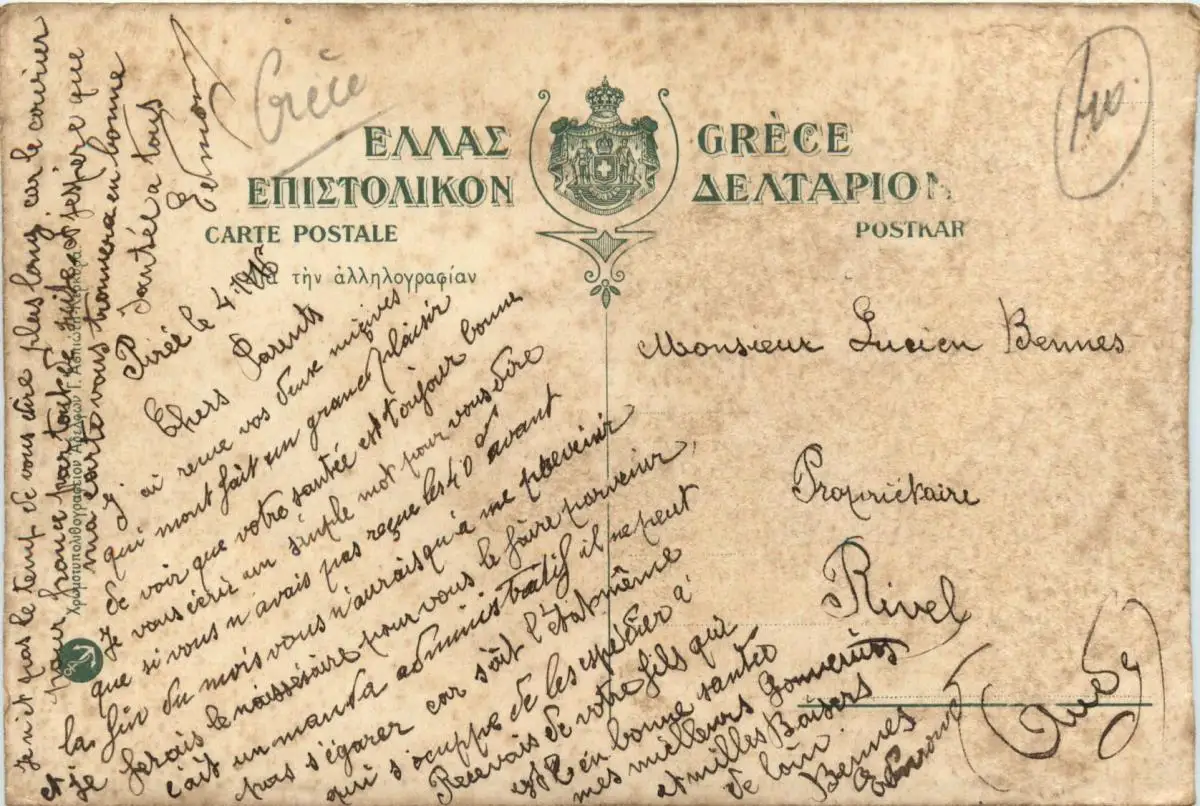 Grèce
40
ΕΛΛΑΣ GRÈCE
ΕΠΙΣΤΟΛΙΚΟΝ ΔΕΛΤΑΡΙΟΝ
CARTE POSTALE POSTKAR
Διὰ τὴν ἀλληλογραφίαν
Pirée le 4.
Chers Parents
J ai reçue vos deux missives
qui mont fait un grand plaisir
de voir que votre santée est toujour bonne
Je vous écris un simple mot pour vous dire
que si vous n'avais pas reçue les 40 f avant
et la fin du mois vous n'auraisqu'à me prevenir
je ferais le nàssésaire pour vous le faire parvenir
cait un manda administratif il ne peut
pas s'égarer car sait l'état même
qui s'ocuppe de les espédier à
Recevais de votre fils qui
est en bonne santé
mes meilleurs
et milles Baisers
de loin.
Bennes
Je net pas le temp de vous dire plus long car le courier
pour france part tout de suite j'espère que
ma carte vous trouvera en bonne
santée a tous
Monsieur Lucien Bennes
Propriétaire
Rivel
(Aude)